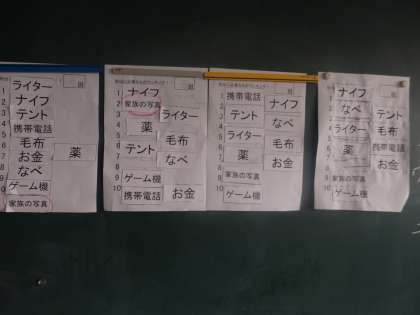 ライター
ナイフ
テント
携帯電話
毛布
お金
薬
なべ
ゲーム機
家族の写真
1
2
3
4
5
6
7
8
9
10
班
ナイフ
家族の写真
ライター
薬
毛布
テント
なべ
ゲーム機
携帯電話
お金
1
2
3
4
5
6
7
8
9
10
班
携帯電話
ナイフ
テント
ライター
毛布
薬
なべ
家族の写真
お金
ゲーム機
1
2
3
4
5
6
7
8
9
10
ナイフ
なべ
テント
ライター
毛布
薬
携帯電話
お金
家族の写真
ゲーム機